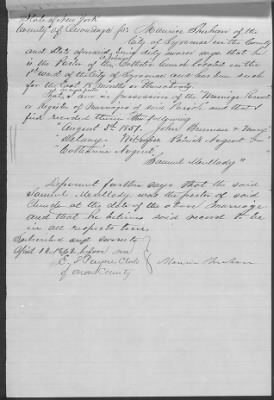 State of New York
County of Onondaga for Maurice Sheehan of the
City of Syracuse in the County
and State aforesaid, being duly sworn says that he
is the Pastor of the Catholic Church located in the
1st ward of the City of Syracuse and has been such
for the last 18 months in this county.
I have in possession of the Marriage Record
or Register of Marriages of said Parish and that I
find recorded therein the following
"August 3d 1857. John Brennan & Mary
Witnesses Patrick Nugent &
Catharine Nugent
Samuel Mulloy"
Deponent further says that the said
Samuel Mulloy was the pastor of said
Church at the date of the above marriage
and that he believes said record to be
in all respects true.
Subscribed and sworn to
April 12. 1862 before me
Clerk
of County